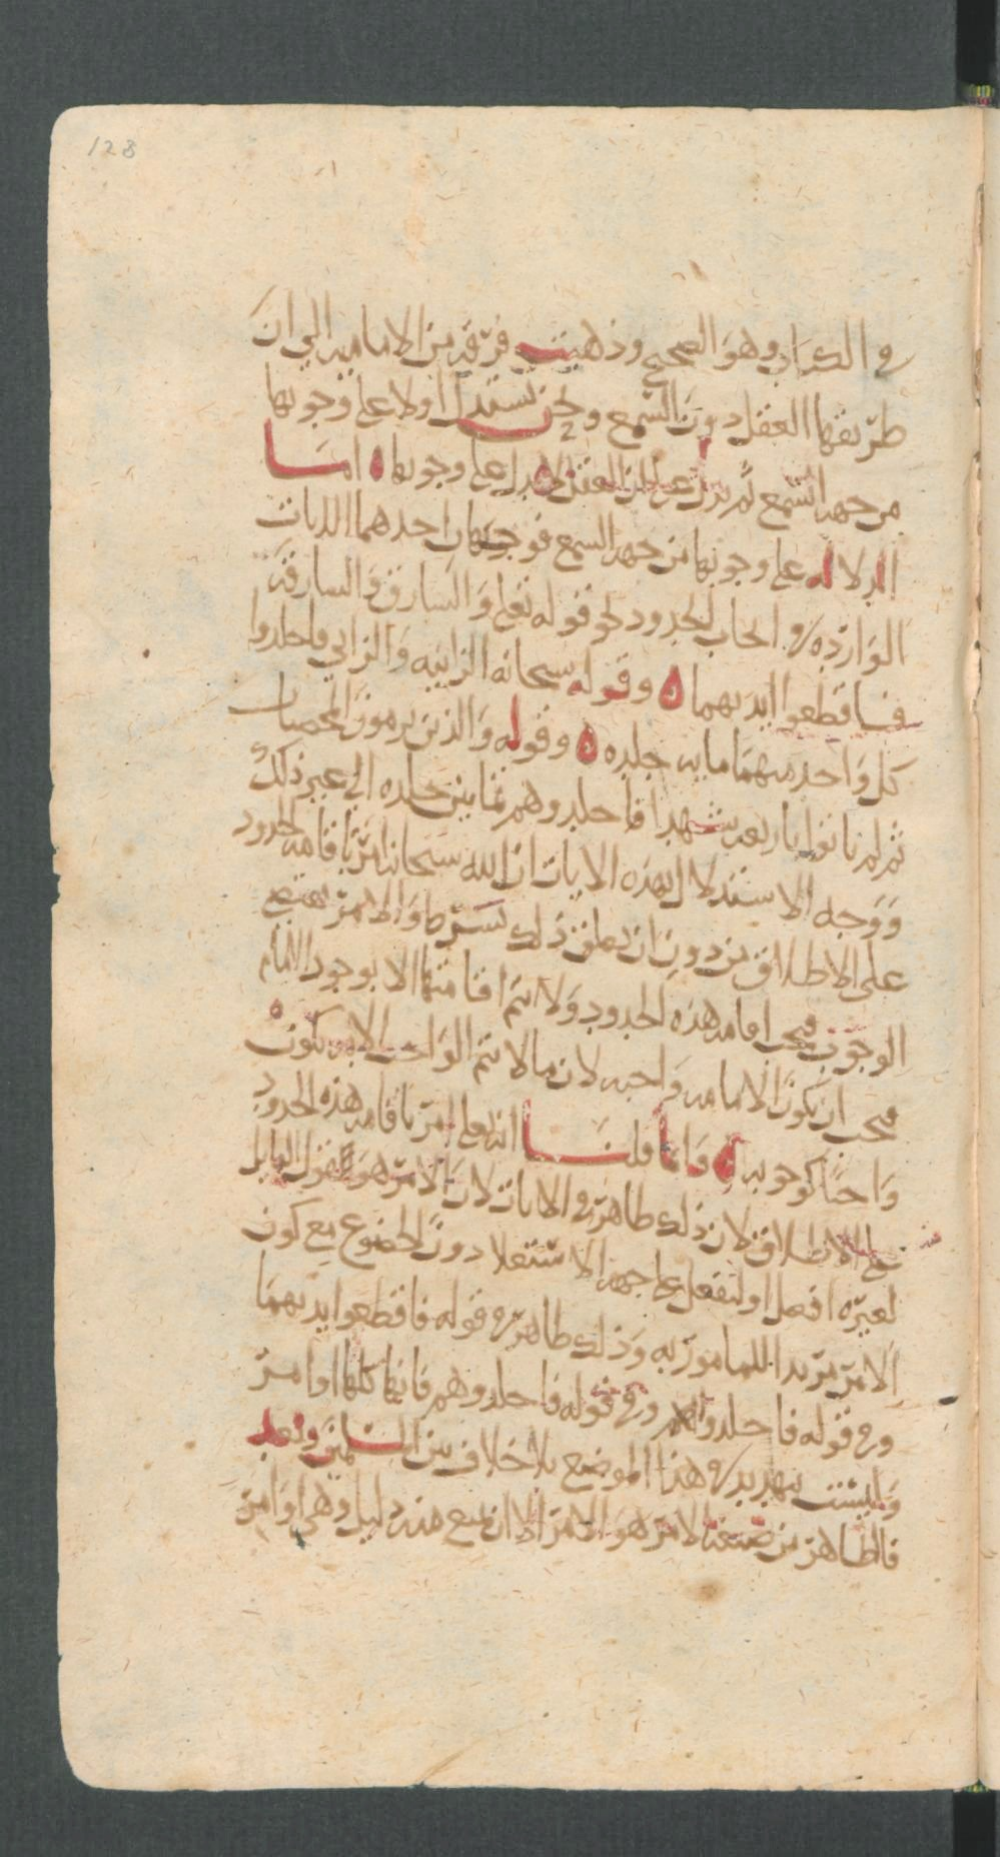 128
في الكتاب وهو الصحيح وذهبت فرقه من الاماميه الي ان
طريقها العقل دون السمع ونحن نستدل اولا علي وجوبها
من جهه السمع ثم ندل علي ان العقل لا يدل علي وجوبها اما
الدلاله علي وجوبها من جهه السمع فوجهان احدهما الايات
الوارده في ايجاب الحدود نحو قوله تعلي والسارق والسارقه
فاقطعوا ايديهما وقوله سبحانه الزانيه والزاني فاجلدوا
كل واحد منهما مايه جلده وقوله والذين يرمون المحصنات
ثم لم ياتوا باربعه شهدا فاجلدوهم ثمانين جلده الي غير ذلك
ووجه الاستدلال بهذه الايات ان الله سبحانه امر باقامه الحدود
علي الاطلاق من دون ان يعلق ذلك بشرط والامر يقتضي
الوجوب فيجب اقامه هذه الحدود ولا تتم اقامتها الا بوجود الامام
فيجب ان تكون الامامه واجبه لان ما لا يتم الواجب الا به يكون
واجبا كوجوبه وانما قلنا انه تعلي امر باقامه هذه الحدود
علي الاطلاق لان ذلك ظاهر في الايات لان الامر هو قول القايل
لغيره افعل او لتفعل علي جهه الاستعلا دون الخضوع مع كون
الامر مريدا للمامور به وذلك ظاهر في قوله فاقطعوا ايديهما
وفي قوله فاجلدوا وفي قوله فاجلدوهم فانها كلها اوامر
وليست بتهديد في هذا الموضع بلا خلاف بين المسلمين وبعد
فالظاهر من صيغه الامر هو الامر الا ان يمنع منه دليل وهي اوامر